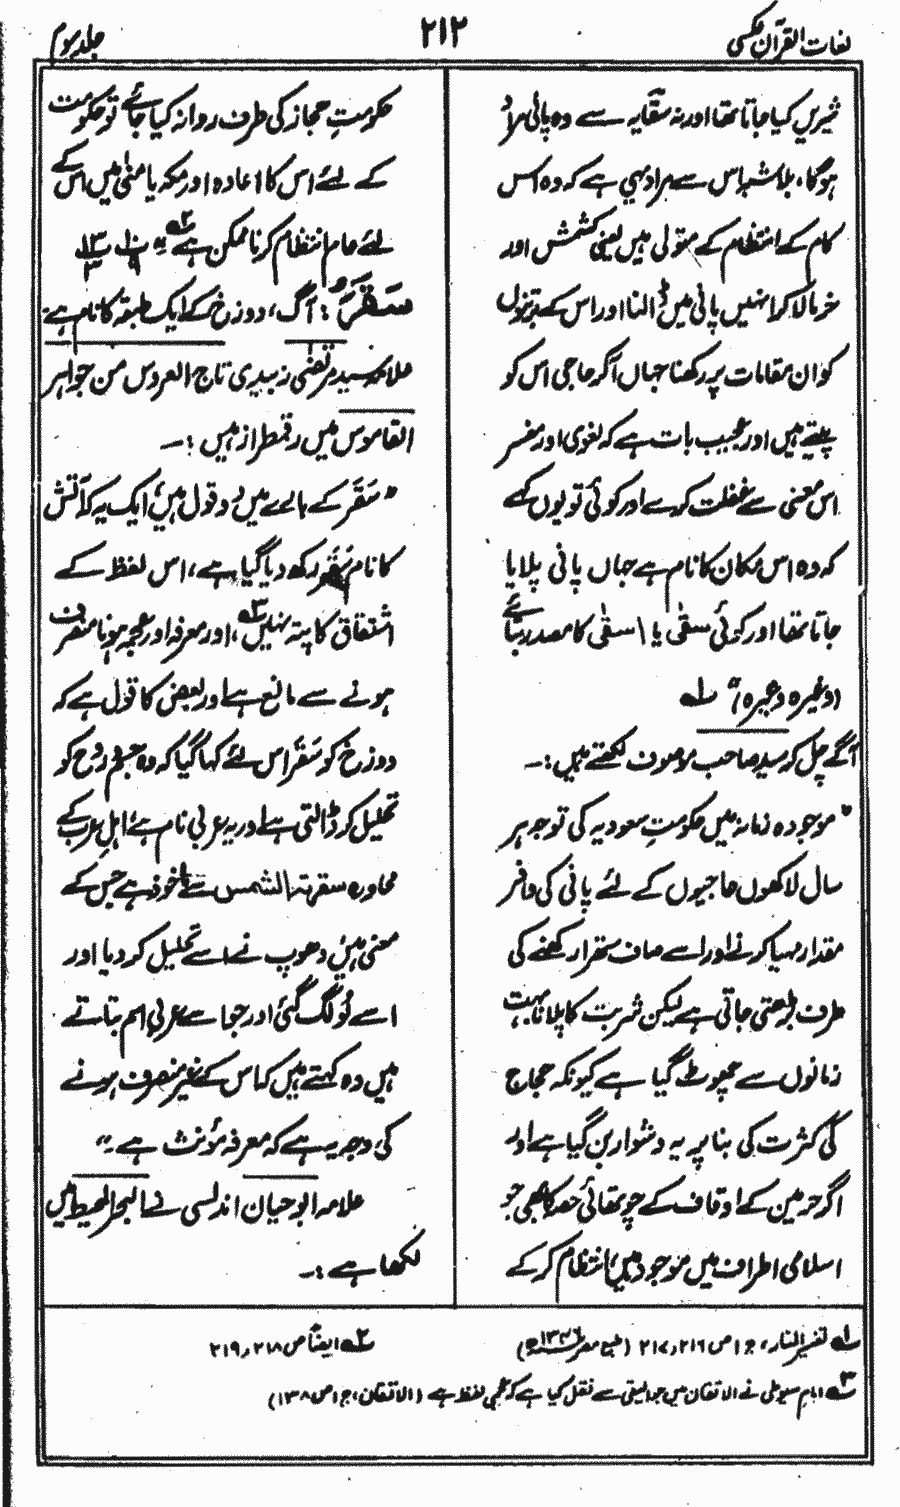 لغات القرآن عکسی
۲۱۲
جلد سوم
شیریں کیا جاتا تھا اور نہ سقایہ سے وہ پانی مراد
ہوگا، بلا شبہ اس سے مراد یہی ہے کہ وہ اس
کام کے انتظام کے متولی ہیں یعنی کشمش اور
خرما لا کر انہیں پانی میں ڈالنا اور اس کے بدنزول
کو ان مقامات پر رکھنا جہاں آکر حاجی اس کو
پیتے ہیں اور عجیب بات ہے کہ لغوی اور مفسر
اس معنی سے غفلت کر کے اور کوئی تو یوں کہے
کہ وہ اس مکان کا نام ہے جہاں پانی پلایا
جاتا تھا اور کوئی سقٰی یا اسقٰی کا مصدر بتائے
(وغیرہ وغیرہ)“ ۱؎
آگے چل کر سید صاحب موصوف لکھتے ہیں:۔
”موجودہ زمانہ میں حکومتِ سعودیہ کی توجہ ہر
سال لاکھوں حاجیوں کے لئے پانی کی وافر
مقدار مہیا کرنے اور اسے صاف ستھرا رکھنے کی
طرف بڑھتی جاتی ہے لیکن شربت کا پلانا بہت
زمانوں سے چھوٹ گیا ہے کیونکہ حجاج
کی کثرت کی بنا پر یہ دشوار بن گیا ہے اور
اگر حرمین کے اوقاف کے چوتھائی حصہ کا بھی جو
اسلامی اطراف میں موجود ہیں، انتظام کر کے
حکومتِ حجاز کی طرف روانہ کیا جائے تو حکومت
کے لئے اس کا اعادہ اور مکہ یا منٰی میں اس کے
لئے عام انتظام کرنا ممکن ہے ۲؎
سَقَرَ: آگ، دوزخ کے ایک طبقہ کا نام ہے:
علامہ سید مرتضٰی زبیدی تاج العروس من جواہر
القاموس میں رقمطراز ہیں:۔
”سَقَر کے بارے میں دو قول ہیں، ایک یہ کہ آتش
کا نام سَقَر رکھ دیا گیا ہے، اس لفظ کے
اشتقاق کا پتہ نہیں ۳؎، اور معرفہ اور عجمہ ہونا منصرف
ہونے سے مانع ہے اور بعض کا قول ہے کہ
دوزخ کو سَقَر اس لئے کہا گیا کہ وہ جسم و روح کو
تحلیل کر ڈالتی ہے اور یہ عربی نام ہے، اہلِ عرب کے
محاورہ سقرتہ الشمس سے ماخوذ ہے جس کے
معنی ہیں، دھوپ نے اسے تحلیل کر دیا اور
اسے لُو لگ گئی اور جو اسے عربی اسم بتاتے
ہیں وہ کہتے ہیں کہ اس کے غیر منصرف ہونے
کی وجہ یہ ہے کہ معرفہ مؤنث ہے۔“
علامہ ابو حیان اندلسی نے البحر المحیط میں
لکھا ہے:۔
۱؎ تفسیر المنار، ج ۱ ص ۲۱۶، ۲۱۷ (طبع مصر ۱۳۴۶ھ)
۲؎ ایضاً ص ۲۱۸، ۲۱۹
۳؎ امام سیوطی نے الاتقان میں جوالیقی سے نقل کیا ہے کہ عجمی لفظ ہے (الاتقان، ج ۱ ص ۱۳۸)